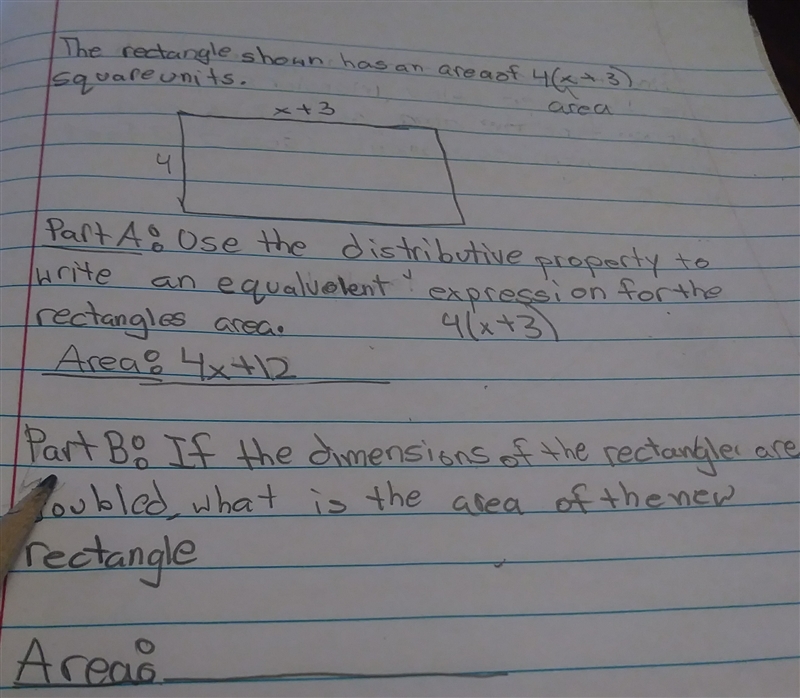 The rectangle shown has an area of 4(x+3)
square units.
area
x+3
4
Part A: Use the distributive property to
write an equalvelent expression for the
rectangles area.
4(x+3)
Area: 4x+12
Part B: If the dimensions of the rectangle are
doubled, what is the area of the new
rectangle
Area: